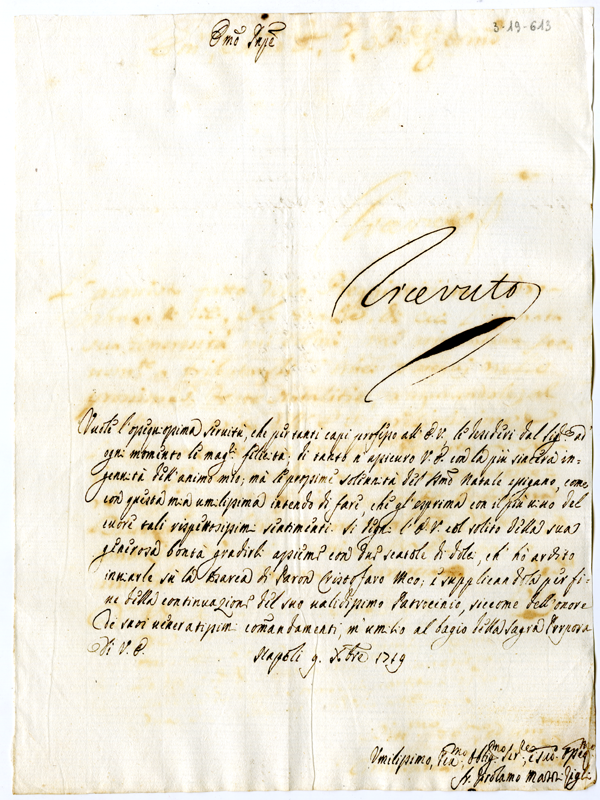 3-19-613
Em̃o Sigre
Ricevuto
Vuole l'ossequiosissima servitù, che per tanti capi professo all' E.V. le desideri dal Sigre ad
ogni momento le magri felicità; di tanto n'assicuro V.E. con la più sincera in-
genuità dell'animo mio; mà le prossime solennità del Smo Natale esigano, come
con questa mia umilissima intendo di fare, che gl'esprima con il più vivo del
cuore tali rispettosissimi sentimenti. Si degni l'E.V. col solito della sua
generosa bontà gradirli assieme con due scatole di dole, ch'hò ardito
inviarle sù la Barca di Paron Cristofaro Meo; e supplicandola per fi-
ne della continuazione del suo validissimo Patrocinio, siccome dell'onore
de suoi veneratissimi comandamenti, m'umilio al bagio della Sagra Porpora
di V.E.
Napoli 9. Xbre 1719
Umilissimo, Obligmo
Girolamo